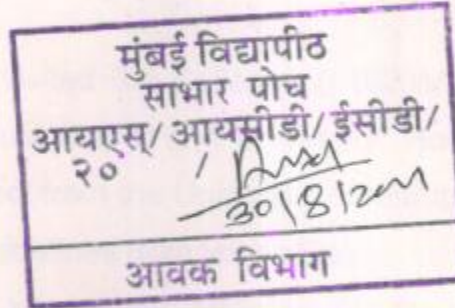 मुंबई विद्यापीठ
साभार पोच
आयएस्/ आयसीडी/ ईसीडी/
२० /
30/8/2011
आवक विभाग